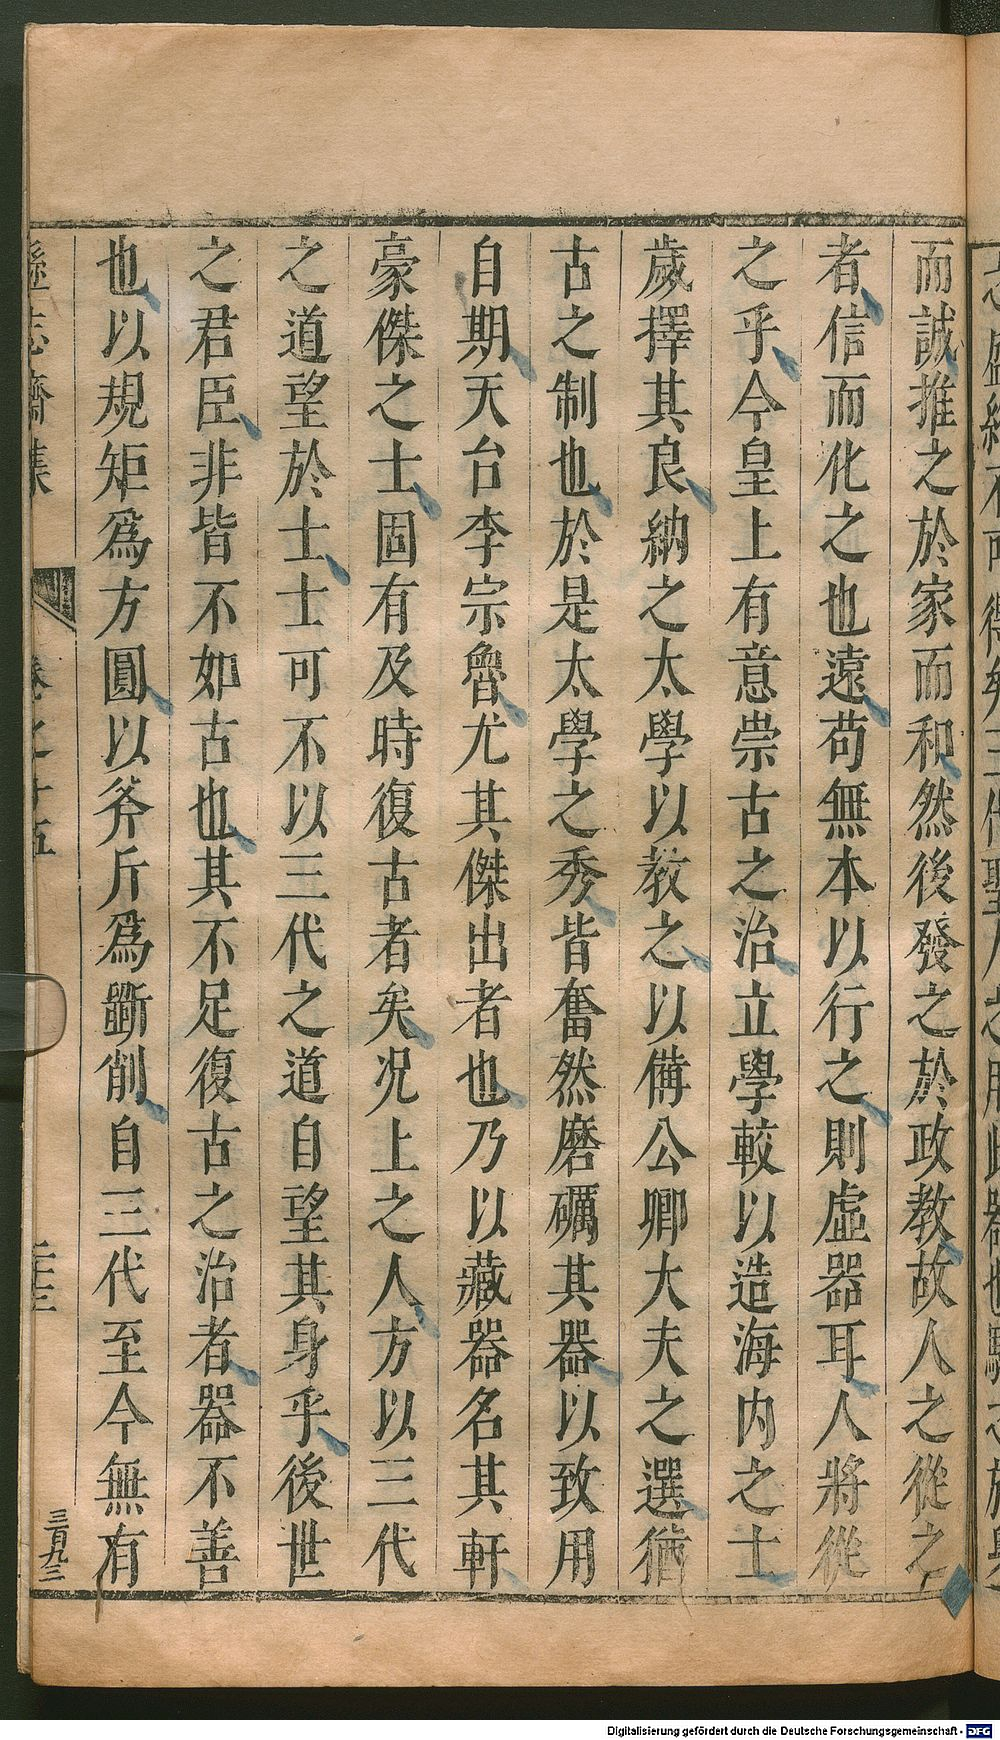 而誠推之於家而和然後發之於政教故人之從之
者信而化之也遠苟無本以行之則虛器耳人將從
之乎今皇上有意崇古之治立學較以造海内之士
歲擇其良納之太學以教之以備公卿大夫之選猶
古之制也於是太學之秀皆奮然磨礪其器以致用
自期天台李宗魯尤其傑出者也乃以藏器名其軒
豪傑之士固有及時復古者矣况上之人方以三代
之道望於士士可不以三代之道自望其身乎後世
之君臣非皆不如古也其不足復古之治者器不善
也以規矩爲方圓以斧斤爲斷削自三代至今無有
遜志齋集
卷之十五
三百九三
Digitalisierung gefördert durch die Deutsche Forschungsgemeinschaft - DFG